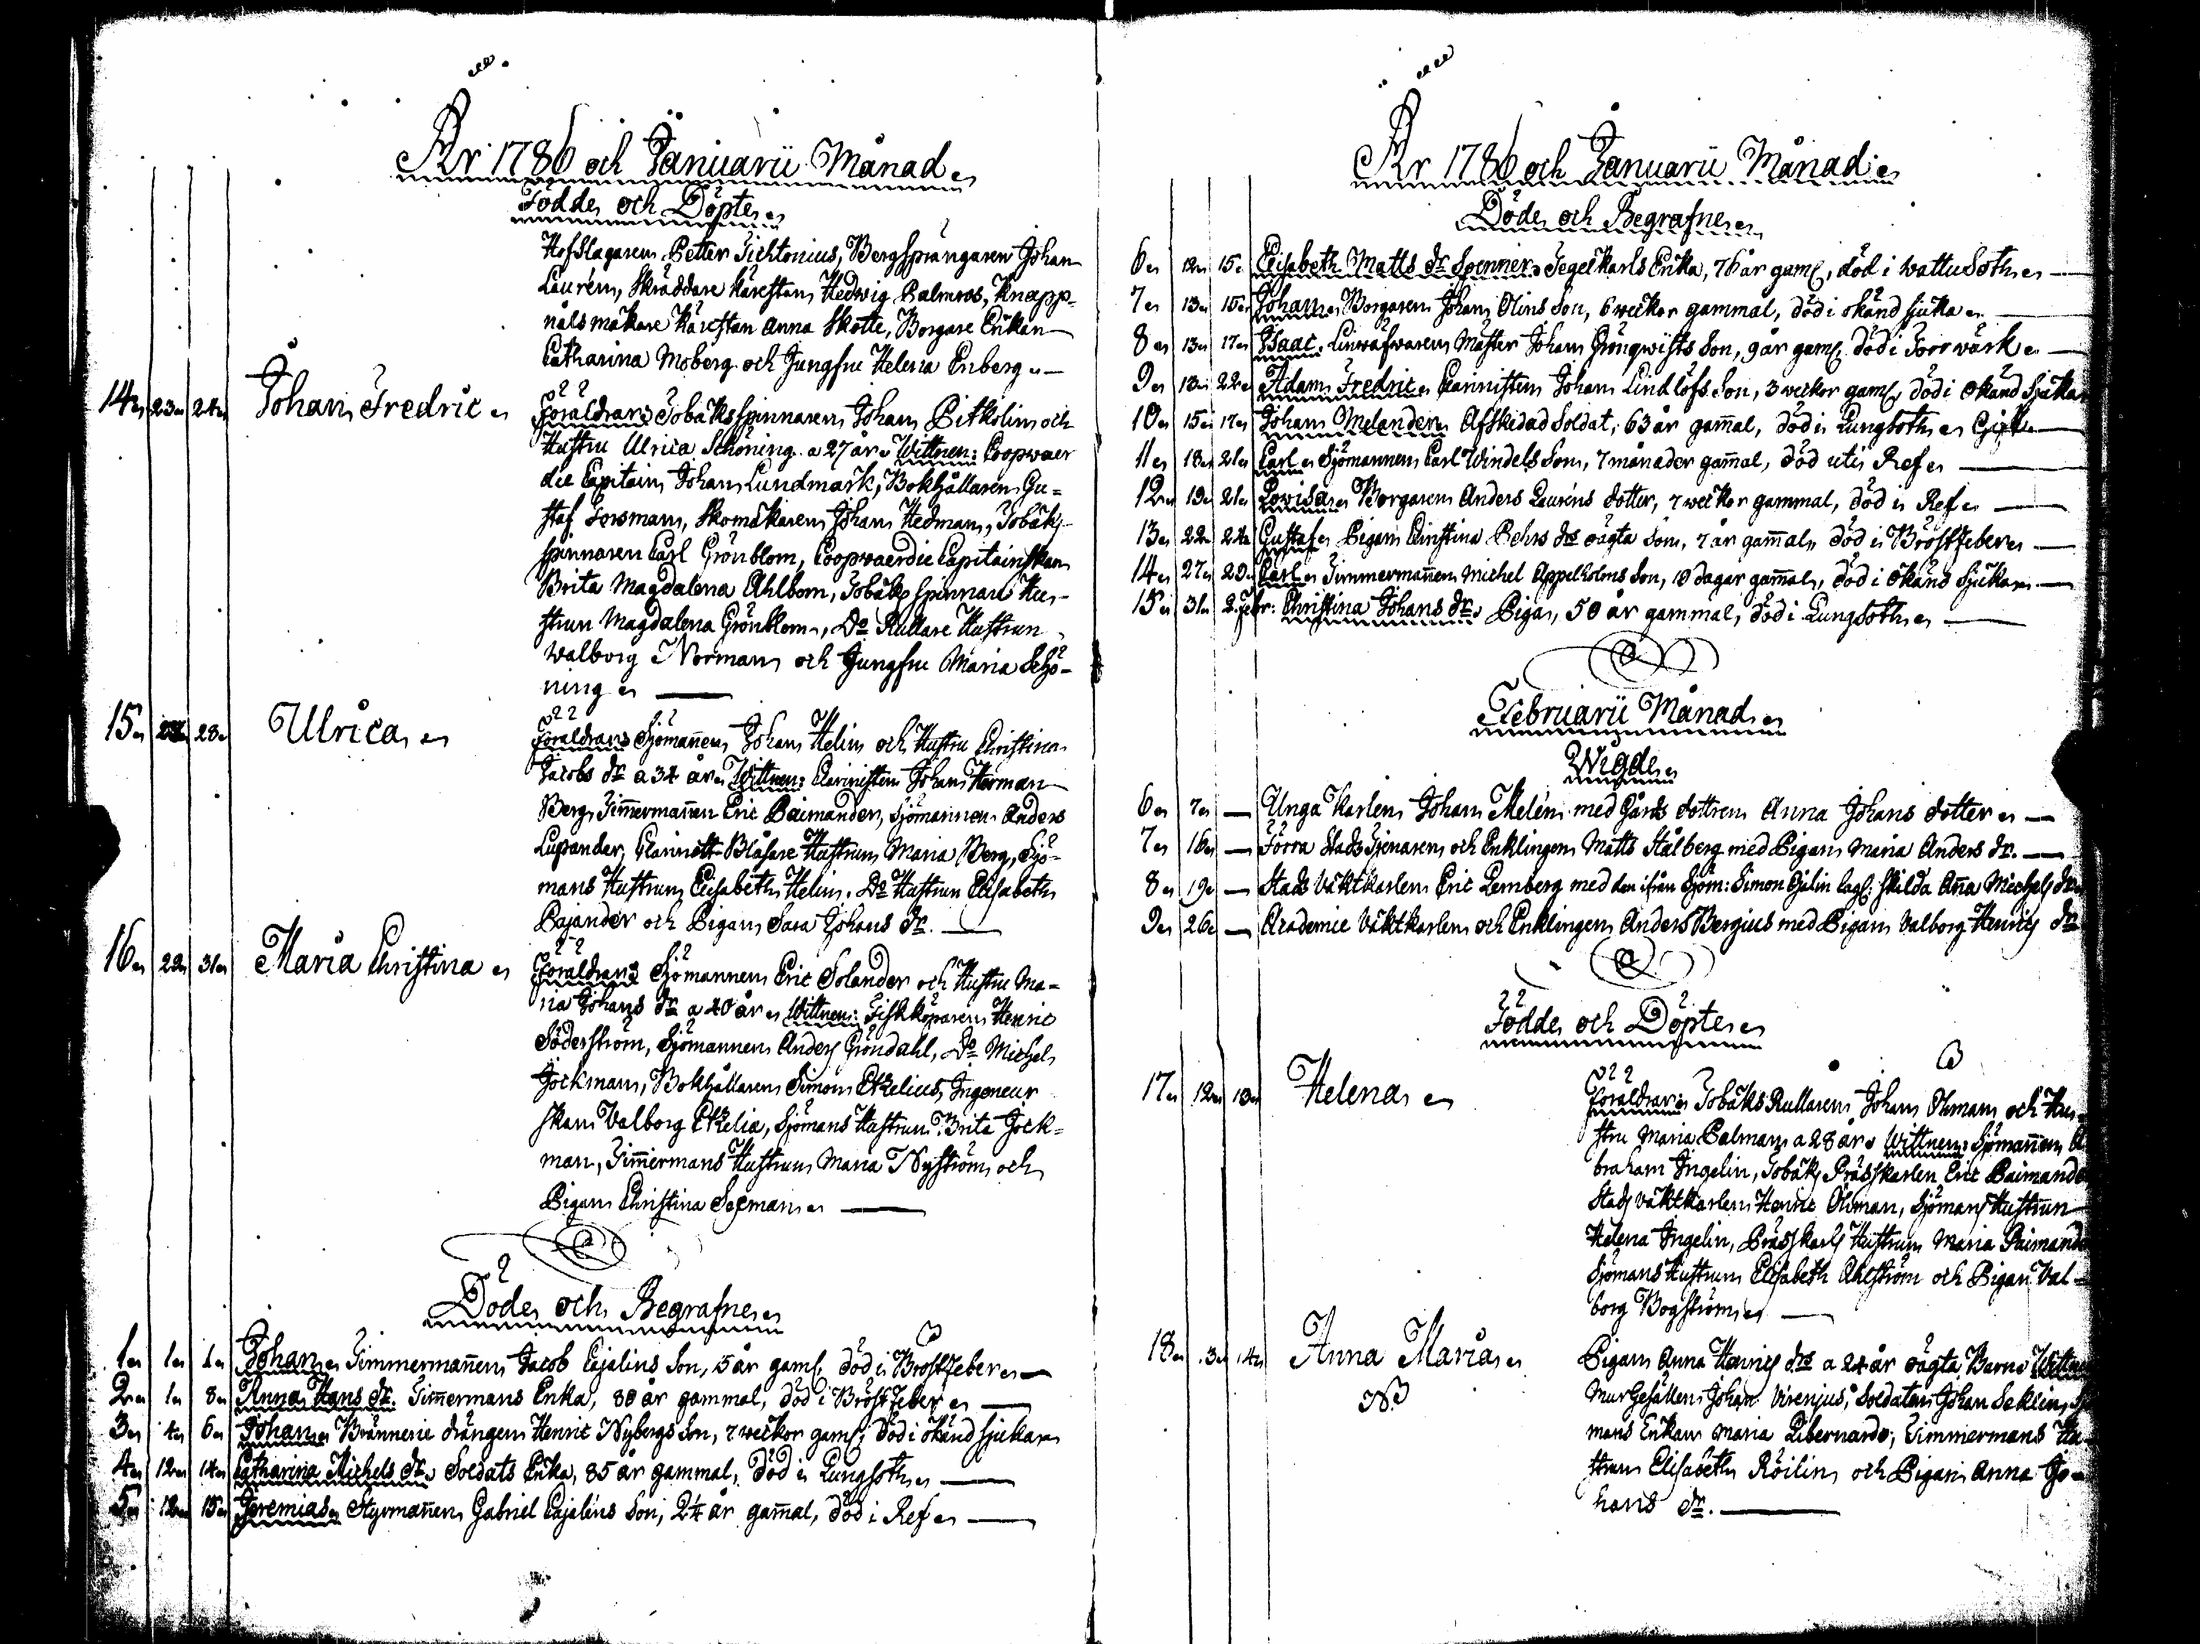 År 1786 och Januarii Månad
Födde och Döpte
Hofslagaren Petter Tichtonius, Bergsprängaren Johan
Laurén, Skräddare Käreſtan Hedwig Palmros, Knapp-
nåls makare Käreſtan Anna Skotte, Borgare Enkan
Catharina Moberg och Jungfru Helena Enberg
14 23 24 Johan Fredric Föräldrar: Tobaks spinnaren Johan Pitkolin och
Hustru Ulrica Schöning a 27 år Wittnen: Coopvaer
die Capitain Johan Lundmark, Bokhållaren Gu=
staf Forsman, Skomakaren Johan Hedman, Tobaks
spinnaren Carl Grönblom, Coopvaerdie Capitainskan
Brita Magdalena Ahlbom, Tobaks spinnare Hu-
strun Magdalena Grönblom, Do Rullare Hustrun
Walborg Norman och Jungfru Maria Schö-
ning
15 28 Ulrica Föräldrar: Sjömannen Johan Helin och Hustru Christina
Jacobs dr a 34 år Wittnen: Clarinisten Johan Herman
Berg, Timmermannen Eric Paimander, Sjömannen Anders
Lupander, Clarinett Blåsare Hustrun Maria Berg, Sjö-
mans Hustrun Elisabeth Helin, Do Hustrun Elisabeth
Pajander och Pigan Sara Johans dr.
16 22 31 Maria Christina Föräldrar: Sjömannen Eric Solander och Hustru Ma-
ria Johans dr a 40 år Wittnen: Fiskköparen Henric
Söderström, Sjömannen Anders Gröndahl, Do Michel
Jockman, Bokhållaren Simon Ekelius, Ingeneur
skan Valborg Ekelia, Sjömans Hustrun Brita Jock=
man, Timmermans Hustrun Maria Nyström och
Pigan Christina Sexman
Döde och Begrafne
1 1 1 Johan Timmermannen Jacob Cajalins Son, 5 år gaml, död i Bröstfeber
2 1 8 Anna Hans dr. Timmermans Enka, 80 år gammal, död i Bröst Feber
3 4 6 Johan Brännerie drängen Henric Nybergs Son, 7 weckor gaml, död i okänd sjukan
4 12 14 Catharina Michels dr Soldats Enka, 85 år gammal, död i Lungsoth
5 12 15 Jeremias Styrmannen Gabriel Cajaléns Son, 2¼ år gammal, död i Ref
År 1786 och Januarii Månad
Döde och Begrafne
6 12 15 Elisabeth Matts dr Spenner, Segelkarls Enka, 76 år gaml, död i Wattusoth
7 13 15 Johan Borgaren Johan Olins Son, 6 weckor gammal, död i okänd sjuka
8 13 17 Isaac Linwäfwaren Mäster Johan Gröngwists Son, 9 år gaml. död i Torrwärk
9 13 22 Adam Fredric Clarinisten Johan Lindlöfs Son, 3 weckor gaml, död i okänd Sjuka
10 15 17 Johan Melander Afskedad Soldat, 63 år gammal, död i Lungsoth
11 18 21 Carl Sjömannen Carl Windels Son, 7 månader gammal, död uti Ref
12 19 21 Lovisa Borgaren Anders Lauréns dotter, 7 weckor gammal, död i Ref
13 22 24 Gustaf Pigan Christina Pehrs drs oägta Son, 7 år gammal, död i Bröstfeber
14 27 29 Carl Timmermannen Michel Appelholms Son, 10 dagar gammal, död i okänd Sjukan
15 31 2 Febr: Christina Johans dr Piga, 50 år gammal, död i Lungsoth
Februarii Månad
Wigde
6 7 Unga Karlen Johan Melén med Gårds dottren Anna Johans dotter
7 16 Förra Stads Tjenaren och Enklingen Matts Stålberg med Pigan Maria Anders dr.
8 19 Stads Väktkarlen Eric Lemberg med den ifrån Sjöm: Simon Gjälin lagl: skilda Anna Michels dr
9 26 Academie Väktkarlen och Enklingen Anders Bergius med Pigan Valborg Henrics dr
Födde och Döpte
17 12 13 Helena Föräldrar: Tobaks Rullaren Johan Öhman och Hu-
stru Maria Palman a 28 år Wittnen: Sjömannen A
braham Ingelin, Tobaks Prässkarlen Eric Paimander
Stads Väktkarlen Henric Öhman, Sjömans Hustrun
Helena Ingelin, Prässkarls Hustrun Maria Paimand
Sjömans Hustrun Elisabeth Ahlström och Pigan Val-
borg Bogström
18 3 4 Anna Maria Pigan Anna Henrics drs a 24 år oägta Barn Wittn
NB Mur Gesällen Johan Virenius, Soldaten Johan Seklin, Sjö
mans Enkan Maria Libernardo, Timmermans Hu
strun Elisabeth Röilin och Pigan Anna Jo-
hans dr.